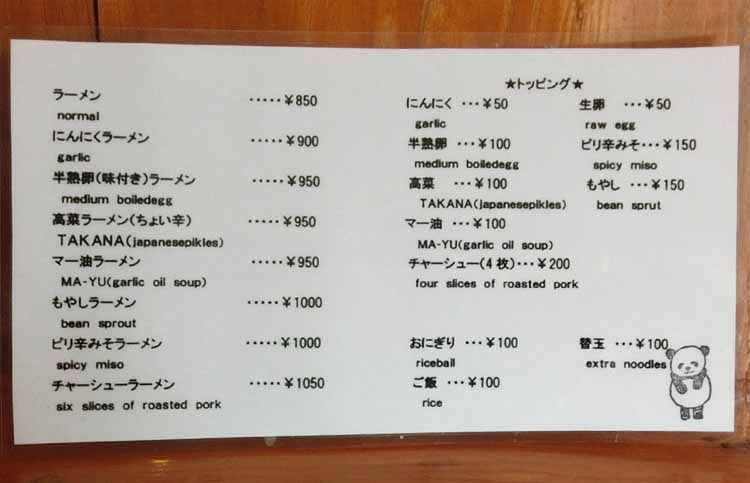 ラーメン ・・・・・¥850
normal
にんにくラーメン ・・・・・¥900
garlic
半熟卵(味付き)ラーメン ・・・・・¥950
medium boiledegg
高菜ラーメン(ちょい辛) ・・・・・¥950
TAKANA(japanesepikles)
マー油ラーメン ・・・・・¥950
MA-YU(garlic oil soup)
もやしラーメン ・・・・・¥1000
bean sprout
ピリ辛みそラーメン ・・・・・¥1000
spicy miso
チャーシューラーメン ・・・・・¥1050
six slices of roasted pork
★トッピング★
にんにく ・・・¥50 生卵 ・・・¥50
garlic raw egg
半熟卵 ・・・¥100 ピリ辛みそ・・・¥150
medium boiledegg spicy miso
高菜 ・・・¥100 もやし ・・・¥150
TAKANA(japanesepikles) bean sprut
マー油 ・・・¥100
MA-YU(garlic oil soup)
チャーシュー(4枚)・・・¥200
four slices of roasted pork
おにぎり ・・・¥100 替玉 ・・・¥100
riceball extra noodles
ご飯 ・・・¥100
rice